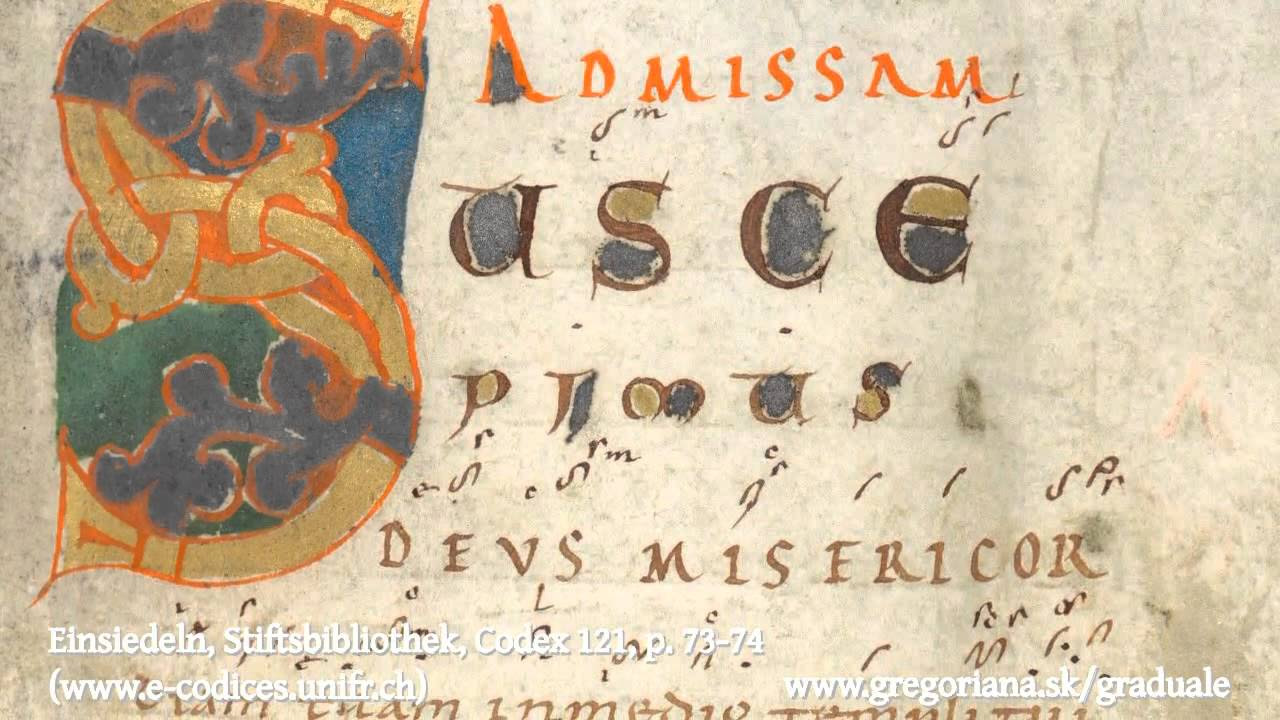 ADMISSAM
SUSCE
PIMUS
DEUS MISERICOR
diam tuam in medio templi tui
Einsiedeln, Stiftsbibliothek, Codex 121, p. 73-74
(www.e-codices.unifr.ch)
www.gregoriana.sk/graduale